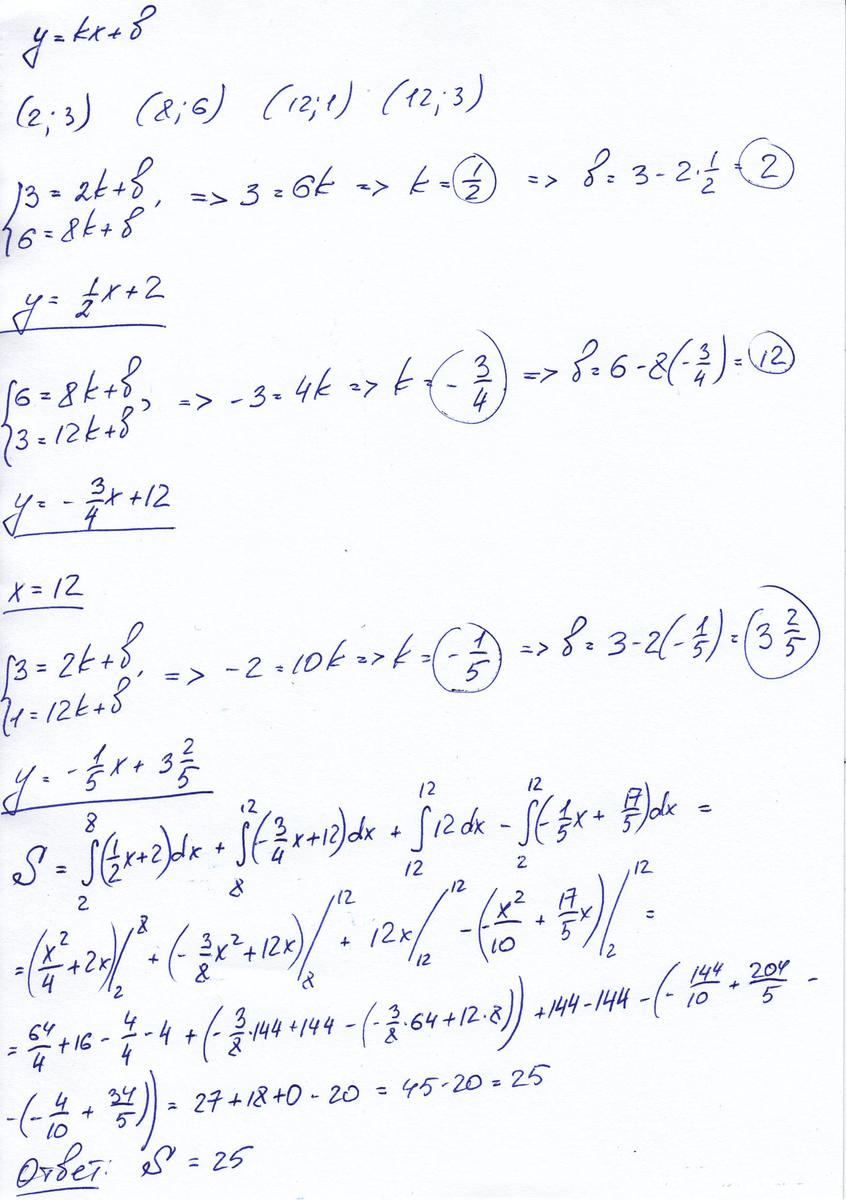 y = kx + b
(2; 3) (8; 6) (12; 1) (12; 3)
{3 = 2k + b, 6 = 8k + b => 3 = 6k => k = 1/2 => b = 3 - 2·1/2 = 2
y = 1/2 x + 2
{6 = 8k + b, 3 = 12k + b => -3 = 4k => k = -3/4 => b = 6 - 8(-3/4) = 12
y = -3/4 x + 12
x = 12
{3 = 2k + b, 1 = 12k + b => -2 = 10k => k = -1/5 => b = 3 - 2(-1/5) = 3 2/5
y = -1/5 x + 3 2/5
S = ∫₂⁸(1/2 x + 2)dx + ∫₈¹²(-3/4 x + 12)dx + ∫₁₂¹² 12 dx - ∫₂¹²(-1/5 x + 17/5)dx =
= (x²/4 + 2x)/₂⁸ + (-3/8 x² + 12x)/₈¹² + 12x/₁₂¹² - (-x²/10 + 17/5 x)/₂¹² =
= 64/4 + 16 - 4/4 - 4 + (-3/8·144 + 144 - (-3/8·64 + 12·8)) + 144 - 144 - (-144/10 + 204/5 -
-(-4/10 + 34/5)) = 27 + 18 + 0 - 20 = 45 - 20 = 25
Ответ: S = 25